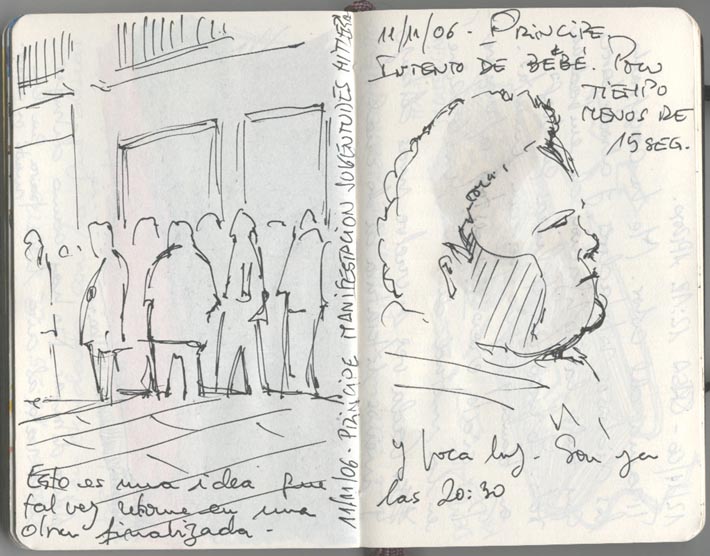 Esto es una idea que
tal vez retome en una
obra finalizada -
11/11/06 - PRÍNCIPE MANIFESTACIÓN JUVENTUDES HITLER
11/11/06 - PRÍNCIPE.
INTENTO DE BEBÉ. POCO
TIEMPO
MENOS DE
15 SEG.
y poca luz. Son ya
las 20:30